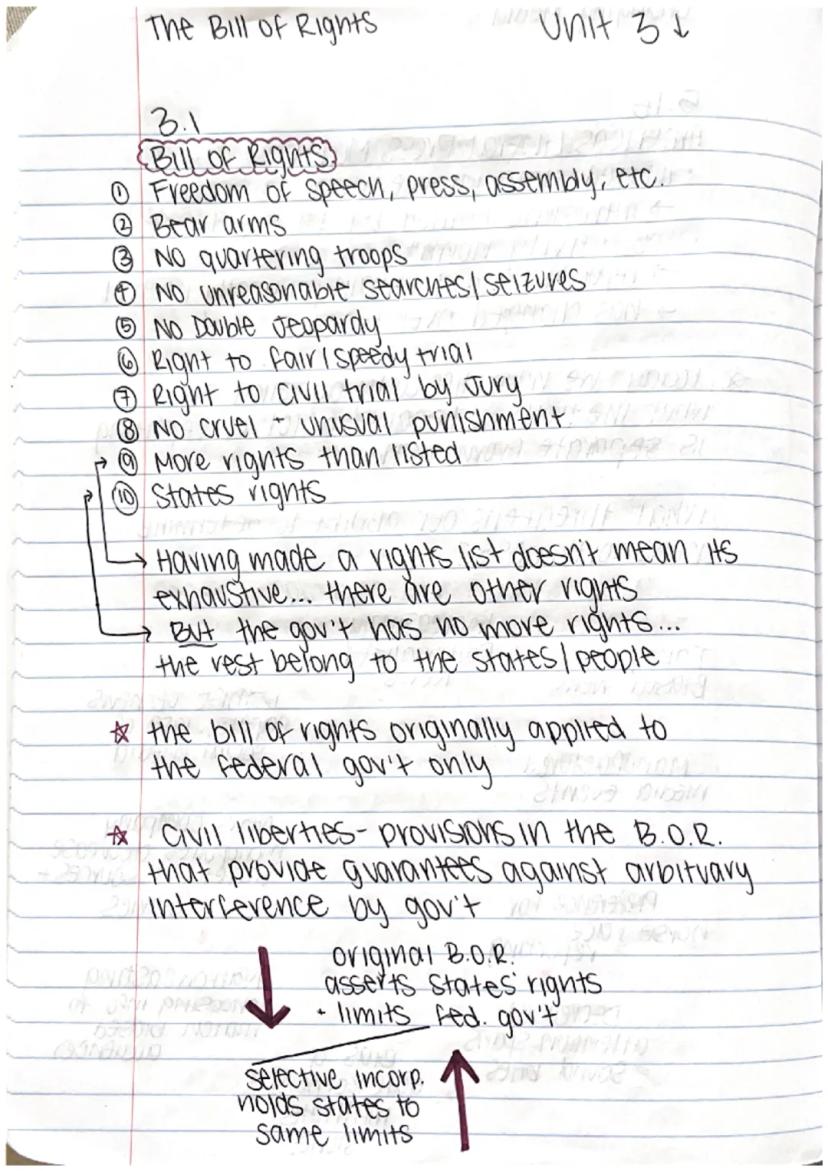 The Bill of Rights Unit 3 ↓
3.1
Bill of Rights
① Freedom of speech, press, assembly, etc.
② Bear arms
③ No quartering troops
④ No unreasonable searches/seizures
⑤ No Double Jeopardy
⑥ Right to fair/speedy trial
⑦ Right to civil trial by Jury
⑧ No cruel + unusual punishment
⑨ More rights than listed
⑩ States rights
→ Having made a rights list doesn't mean its
exhaustive... there are other rights
→ But the gov't has no more rights...
the rest belong to the states/people
☆ the bill of rights originally applied to
the federal gov't only
☆ Civil liberties - provisions in the B.O.R.
that provide guarantees against arbituary
interference by gov't
original B.O.R.
asserts states' rights
+ limits fed. gov't
selective incorp.
holds states to
same limits